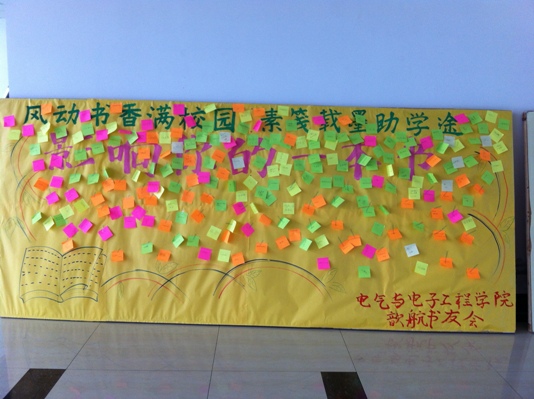 风动书香满校园 素笺载墨助学途
影响 的一本书
电气与电子工程学院
航书友会